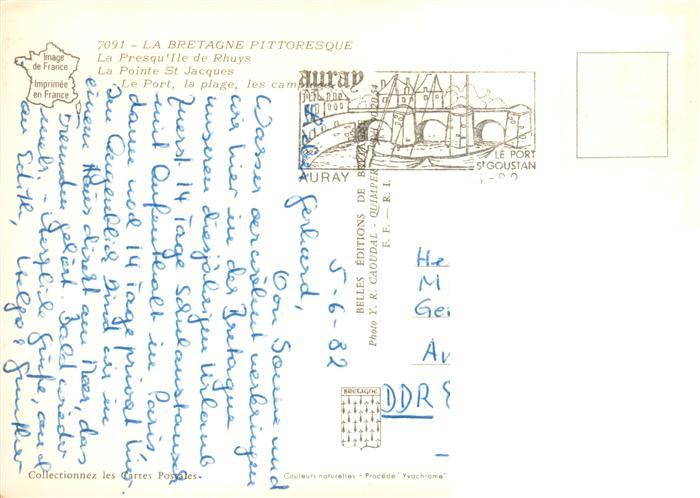 7091 - LA BRETAGNE PITTORESQUE
La Presqu'Ile de Rhuys
La Pointe St Jacques
Le Port, la plage, les camp
Image
de France
Imprimée
en France
auray
AURAY
LE PORT
St GOUSTAN
5-6-82
Gerhard,
Von Sonne und
Wasser verwöhnt verbringen
wir hier in der Bretagne
unseren diesjährigen Urlaub
Zuerst 14 Tage Schulaustausch
mit Aufenthalt in Paris
dann noch 14 Tage privat hier
Im Augenblick sind wir in
einem Haus direkt am Meer, das
Freunden gehört. Bald wieder
mehr. Herzliche Grüße, auch
an Edith, Helga & Günther
BELLES ÉDITIONS DE
Photo Y. R. CAOUDAL - QUIMPER
F. F. — R. I.
He
M
Gei
DDR
BRETAGNE
Collectionnez les Cartes Postales.
Couleurs naturelles - Procédé "Yvachrome"